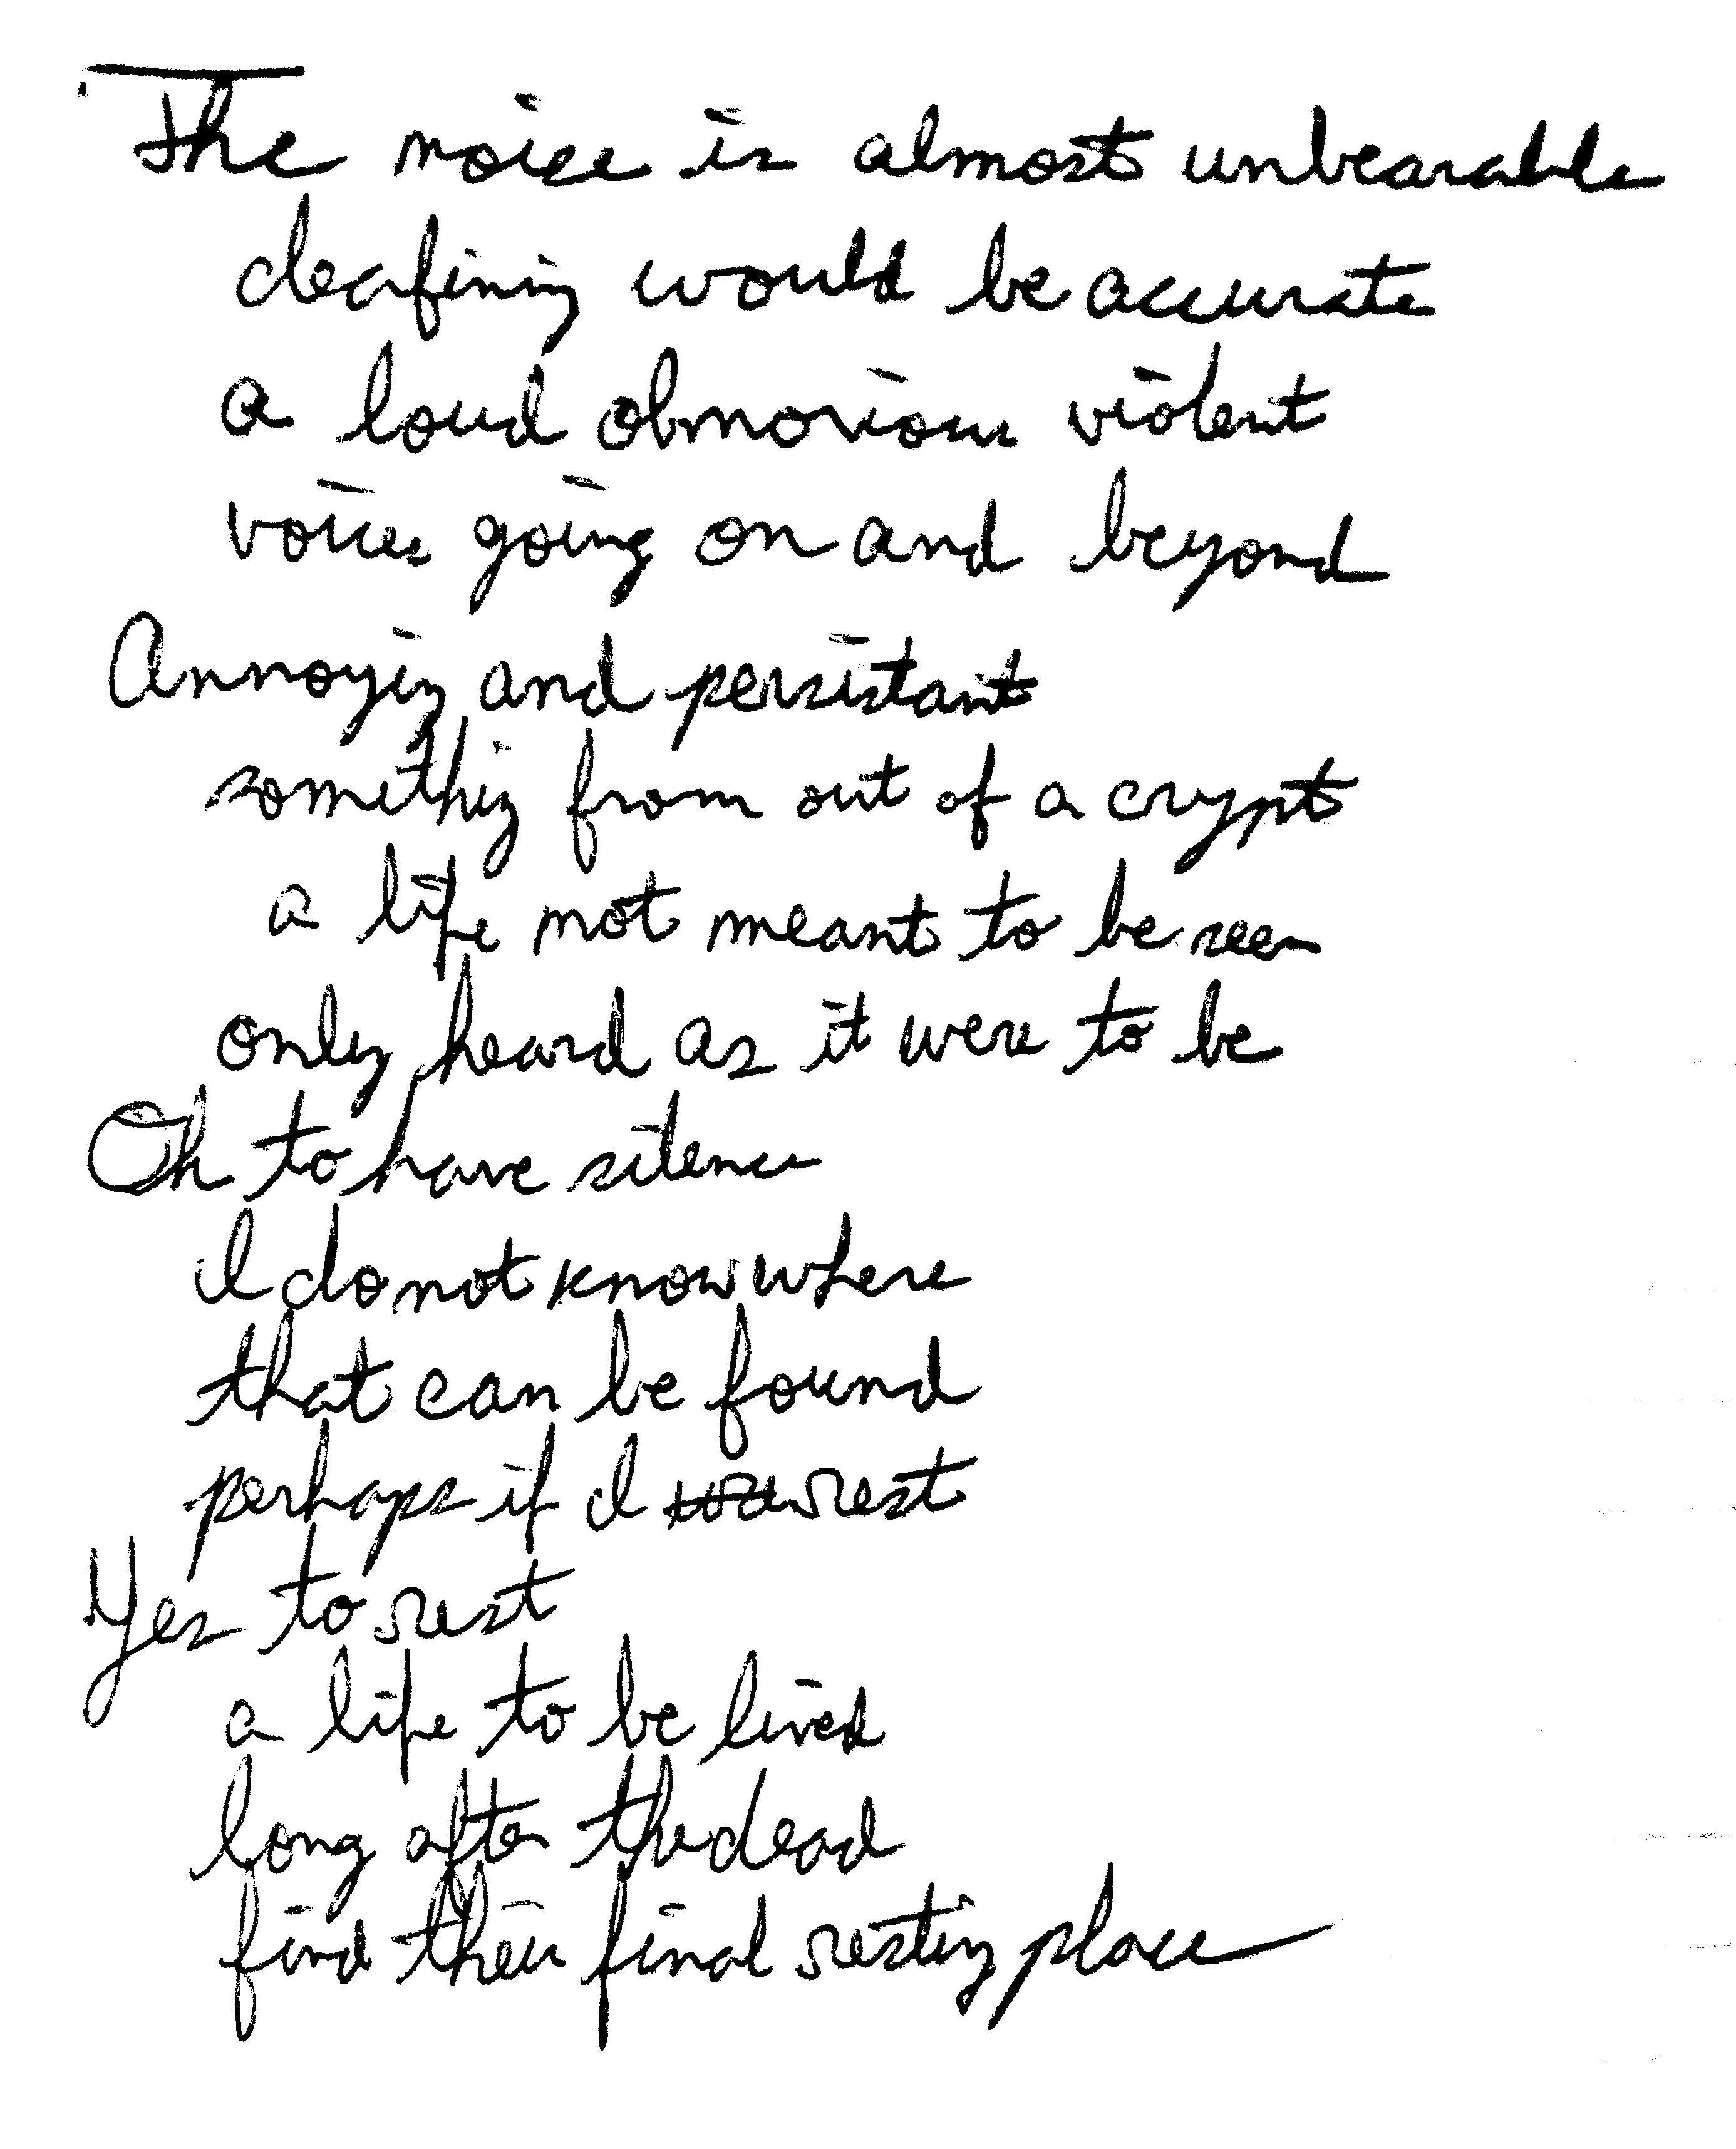 The noise is almost unbearable
deafining would be accurate
a loud obnoxious violent
voice going on and beyond
Annoying and persistant
something from out of a crypt
a life not meant to be seen
only heard as it were to be
Oh to have silence
I do not know where
that can be found
perhaps if I rest
Yes to rest
a life to be lived
long after the dead
find their final resting place